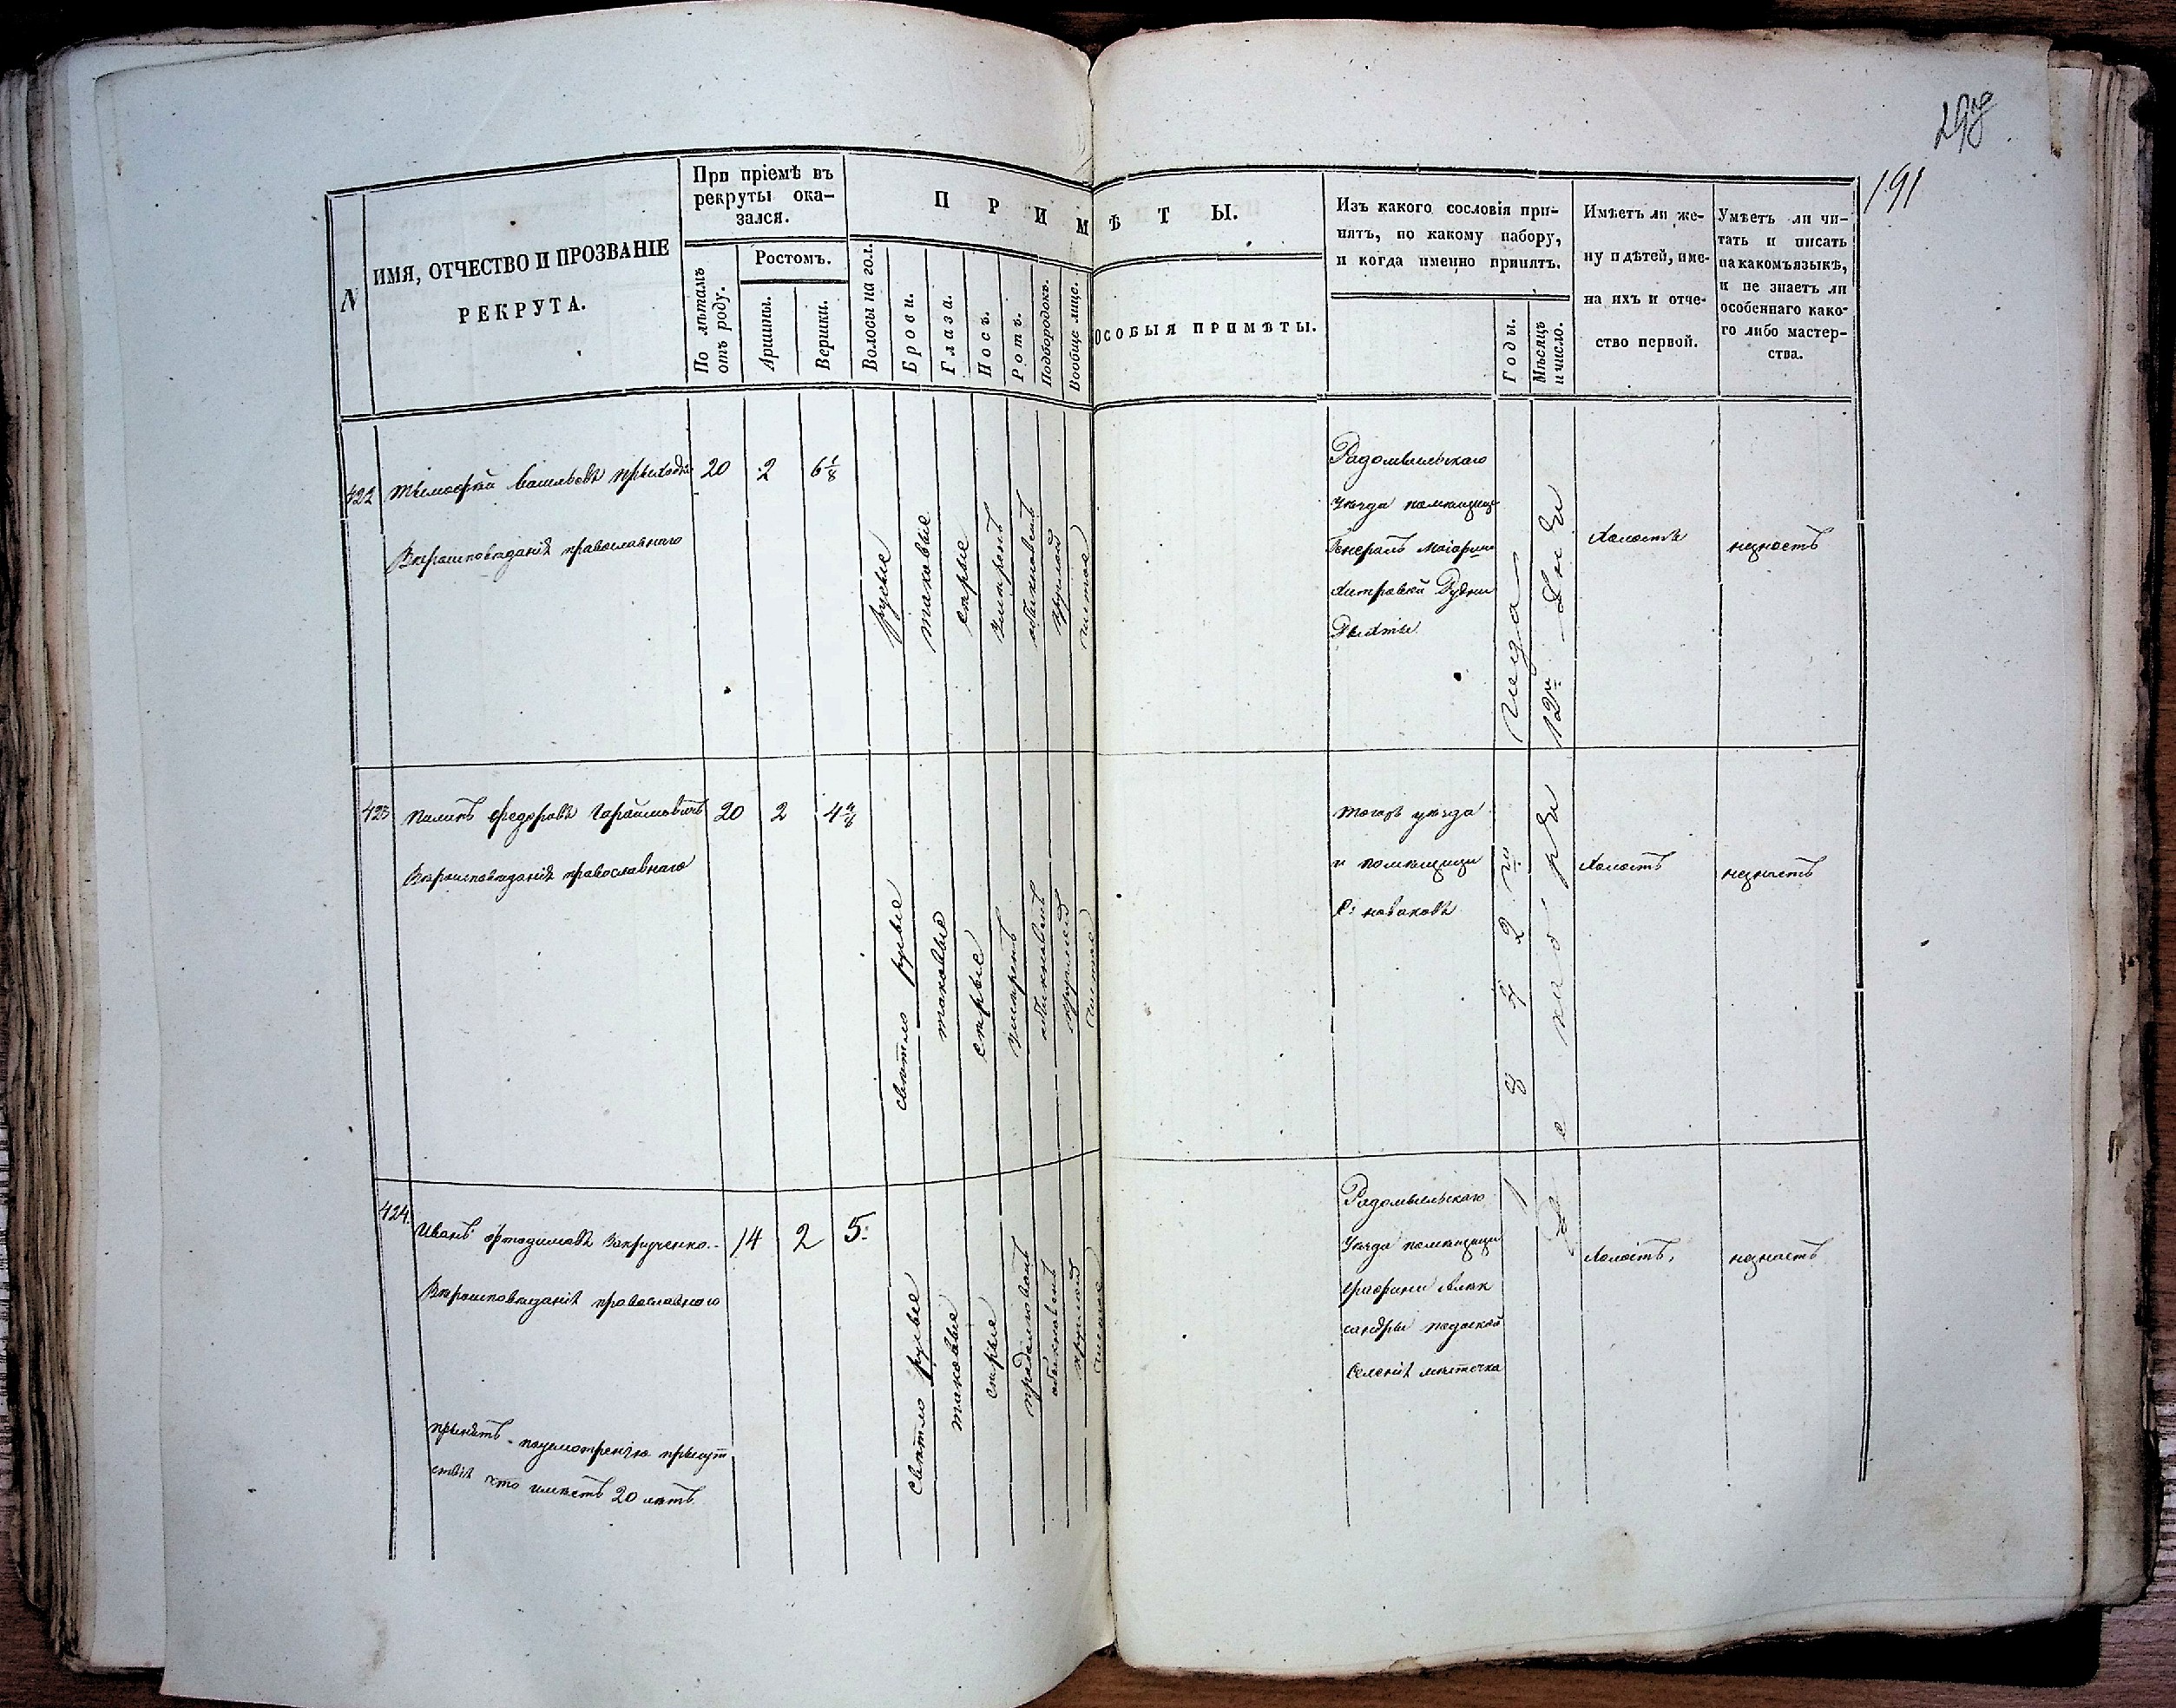 298
191
N
ИМЯ, ОТЧЕСТВО И ПРОЗВАНІЕ
РЕКРУТА.
При пріемѣ въ
рекруты ока-
зался.
По лѣтамъ
отъ роду.
Ростомъ.
Аршины.
Вершки.
ПРИМѢТЫ.
Волосы на гол.
Брови.
Глаза.
Носъ.
Ротъ.
Подбородокъ.
Вообще лице.
ОСОБЫЯ ПРИМѢТЫ.
Изъ какого сословія при-
нятъ, по какому набору,
и когда именно принятъ.
Годы.
Мѣсяцъ
и число.
Имѣетъ ли же-
ну и дѣтей, име-
на ихъ и отче-
ство первой.
Умѣетъ ли чи-
тать и писать
на какомъ языкѣ,
и не знаетъ ли
особеннаго како-
го либо мастер-
ства.
422
Тимофѣй Васильевъ
Вѣроисповѣданія православнаго
20
2
6 1/8
русые
таковые
сѣрые
умѣренъ
обыкновенъ
круглой
чистое
Радомысльскаго
уѣзда помѣщицы
Генералъ Маіорши
Рудни
1842 года
12
холостъ
незнаетъ
423
Федоровъ
Вѣроисповѣданія православнаго
20
2
4 4/8
свѣтло русые
таковые
сѣрые
умѣренъ
обыкновенъ
круглой
чистое
тогожъ уѣзда
и помѣщицы
холостъ
незнаетъ
424.
Иванъ Закрученко
Вѣроисповѣданія православнаго
принятъ по усмотренію присут
ствія что имѣетъ 20 лѣтъ
14
2
5
свѣтло русые
таковые
сѣрые
продолговатъ
обыкновенъ
круглой
чистое
Радомысльскаго
уѣзда помѣщицы
графини Алек
сандры
селенія мѣстечка
холостъ,
незнаетъ